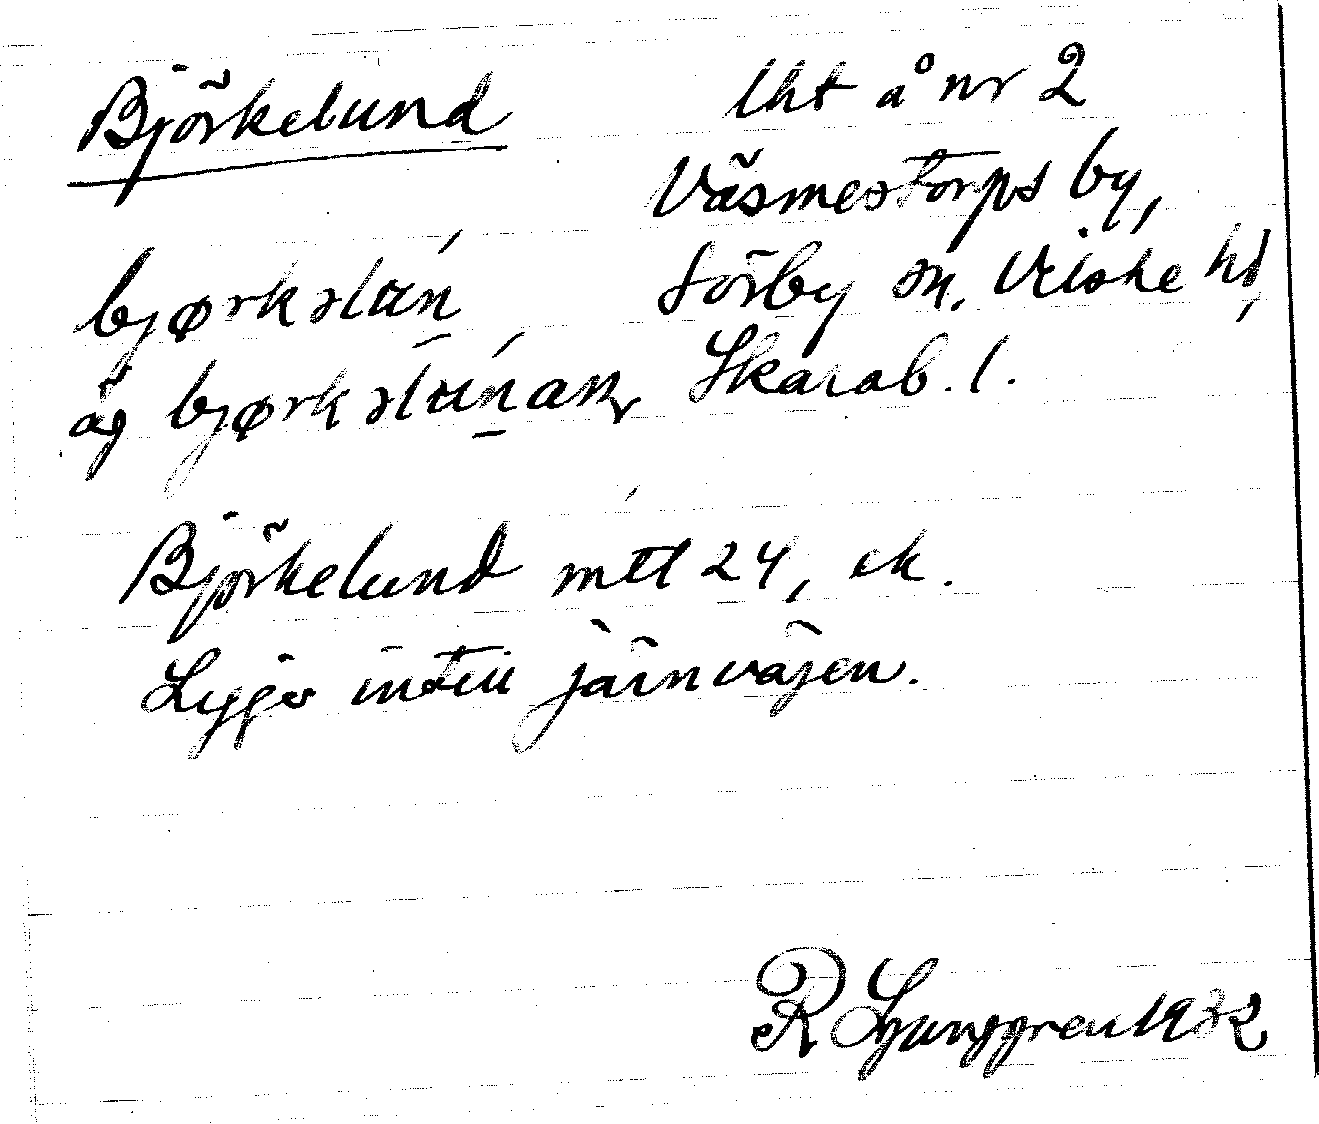 Björkelund
lht å nr 2
Väsmestorps by,
Sörby sn. Vilske hd,
Skarab. l.
bjørkəlún
åg bjørkəlúnan
Björkelund mtl 24, ek.
Ligger intill järnvägen.
R Ljunggren 1932